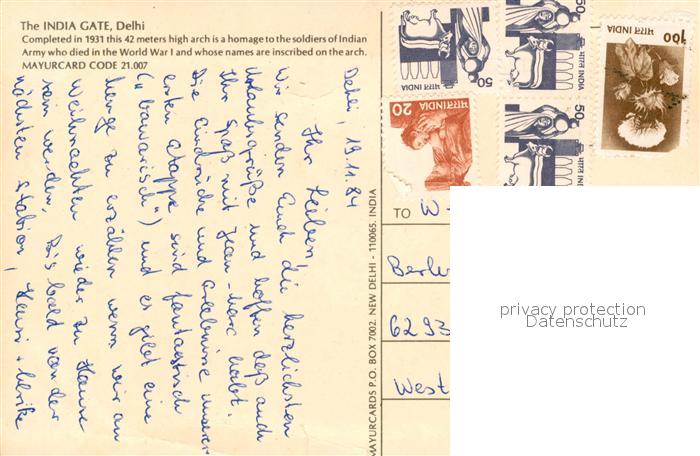 The INDIA GATE, Delhi
Completed in 1931 this 42 meters high arch is a homage to the soldiers of Indian
Army who died in the World War I and whose names are inscribed on the arch.
MAYURCARD CODE 21.007
Delhi, 19.11.84
Ihr Lieben,
Wir senden Euch die herzlichsten
Urlaubsgrüße und hoffen daß auch
Ihr Spaß mit Jean-Marc habt.
Die Eindrücke und Erlebnisse unserer
ersten Etappe sind fantastisch
("bavarisch") und es gibt eine
Menge zu erzählen wenn wir an
Weihnachten wieder zu Hause
sein werden. Bis bald von der
nächsten Station, Henri + Ulrike
MAYURCARDS P.O. BOX 7002. NEW DELHI - 110065. INDIA
50
भारत INDIA
50
20
भारत INDIA
50
भारत INDIA 100
TO W-
Berle
6293
West
privacy protection
Datenschutz